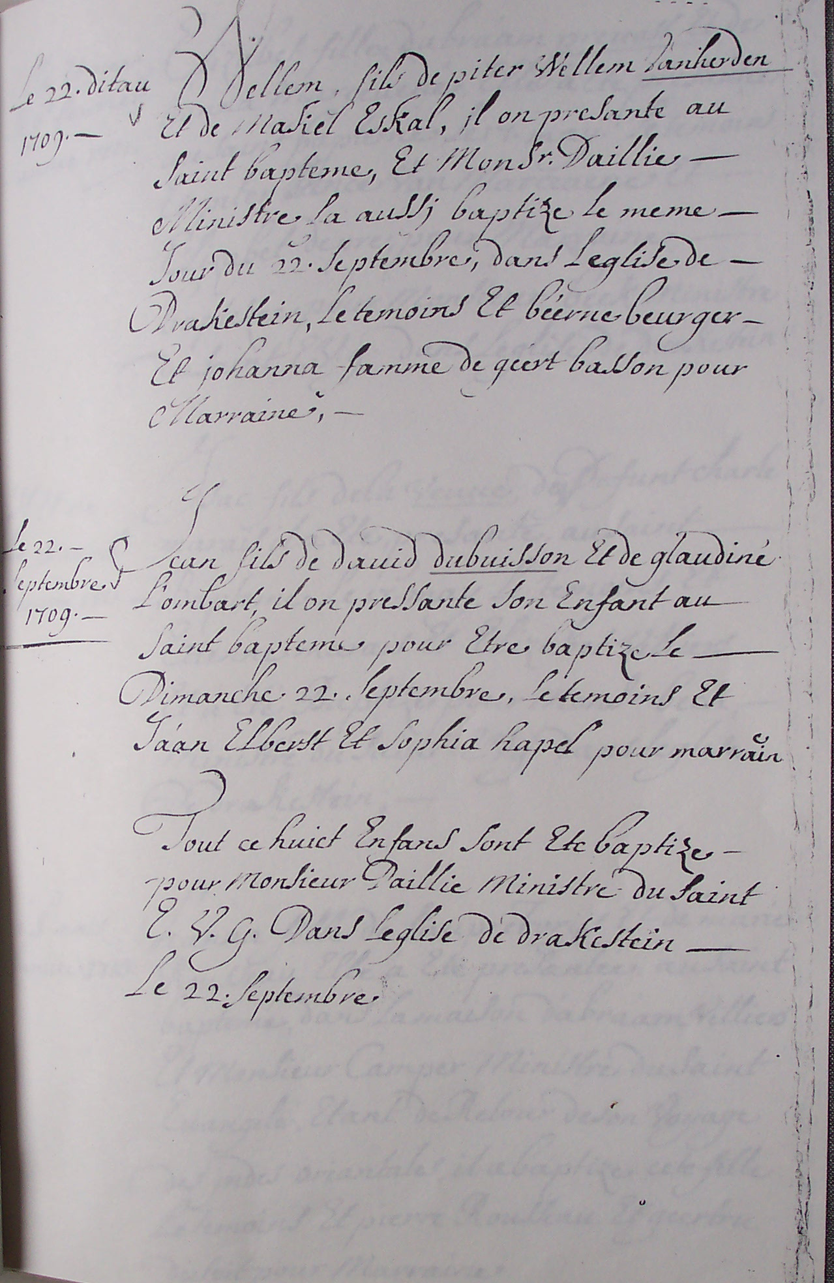 Le 22. ditau
1709. —
Wellem, fils de piter Wellem Vanherden
Et de Makiel Eskal, il on presante au
Saint bapteme, Et Monsr. Daillie —
Ministre la aussj baptize le meme —
Jour du 22. Septembre, dans Leglise de —
Drakestein, Le temoins Et béerne beurger —
Et johanna famme de geert basson pour
Marraine, —
Le 22. —
Septembre
1709. —
Jean fils de dauid dubuisson Et de glaudine
L'ombart, il on pressante son Enfant au
Saint bapteme pour Etre baptize Le —
Dimanche 22. Septembre, Le temoins Et
Jáan Elberst Et Sophia hapel pour marrain
Tout ce huict Enfans sont Ete baptize —
pour Monsieur Daillie Ministre du Saint
E. V. G. Dans Leglise de drakestein —
Le 22. Septembre